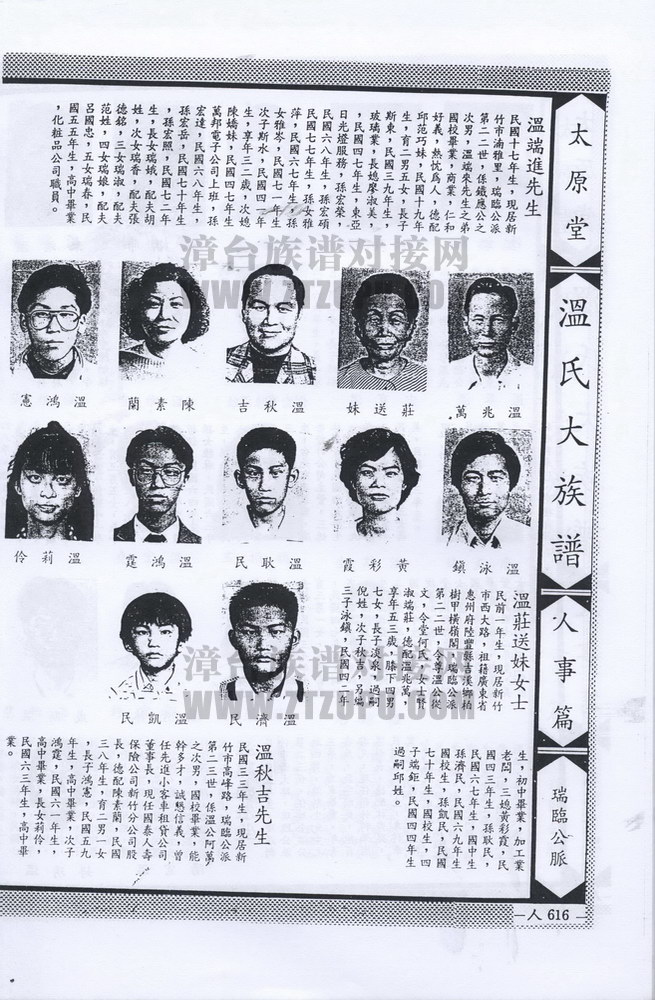 太原堂
溫氏大族譜
人事篇
瑞臨公脈
人 616
溫端進先生
民國十七年生，現居新
竹市湳雅里，瑞臨公派
第二二世，係鐵應公之
次男，溫端來先生之弟
國校畢業，商業，仁和
好義，熱忱為人，德配
邱范巧妹，民國十九年
生，育二男五女，長子
斯東，民國三九年生，
玻璃業，長媳廖淑美，
民國四七年生，東亞
日光燈服務，孫宏榮，
民國六八年生，孫宏碩
民國七七年生，孫女雅
萍，民國六七年生，孫
女雅岑，民國七一年生
次子斯水，民國四一年
生，享年三二歲，次媳
陳嬌妹，民國四七年生
萬邦電子公司上班，孫
宏達，民國六八年生，
孫宏岳，民國七十年生
，孫宏照，民國七二年
生，長女瑞娥，配夫胡
姓，次女瑞香，配夫張
德銘，三女瑞淑，配夫
范姓，四女瑞娘，配夫
呂國忠，五女瑞春，民
國五五年生，高中畢業
，化粧品公司職員。
漳台族谱对接网
WWW.ZTZUPU.COM
溫兆萬
莊送妹
溫秋吉
陳素蘭
溫鴻憲
溫泳鎮
黃彩霞
溫耿民
溫鴻霆
溫莉伶
溫濟民
溫凱民
溫莊送妹女士
民前一年生，現居新竹
市西大路，祖籍廣東省
惠州府陸豐縣吉溪鄉柏
樹甲橫嶺閣，瑞臨公派
第二二世，令尊溫公從
文，令堂何氏，女士賢
淑端莊，德配溫兆萬，
享年五三歲，膝下四男
七女，長子淡泉，過嗣
倪姓，次子秋吉，另編
三子泳鎮，民國四二年
生，初中畢業，加工業
老闆，三媳黃彩霞，民
國四三年生，孫耿民，
民國六七年生，國中生
孫濟民，民國六九年生
國校生，孫凱民，民國
七十年生，國校生，四
子端鉅，民國四四年生
過嗣邱姓。
溫秋吉先生
民國三三年生，現居新
竹市高峰路，瑞臨公派
第二三世，係溫公阿萬
之次男，國校畢業，能
幹多才，誠懇信義，曾
任先進小客車租賃公司
董事長，現任國泰人壽
保險公司新竹分公司股
長，德配陳素蘭，民國
三八年生，育二男一女
，長子鴻憲，民國五九
年生，高中畢業，次子
鴻霆，民國六一年生，
高中畢業，長女莉伶，
民國六三年生，高中畢
業。
漳台族谱对接网
WWW.ZTZUPU.COM